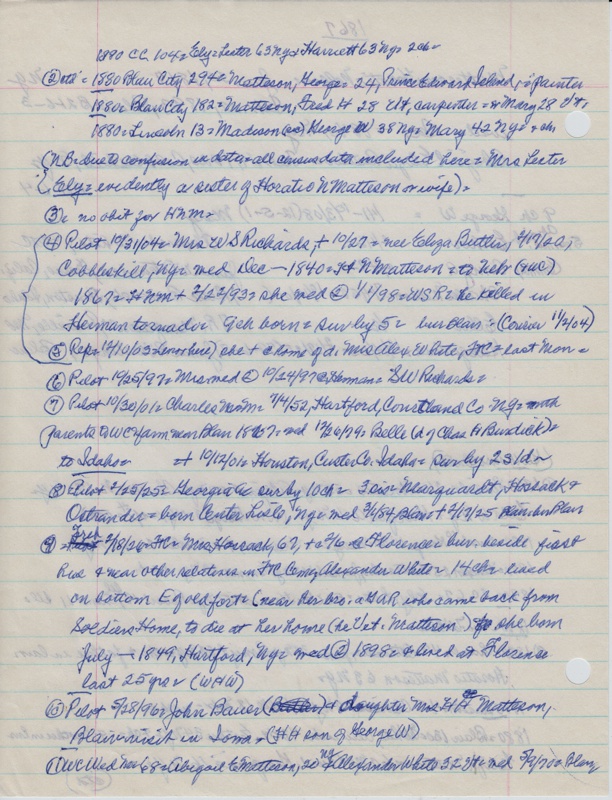 1890 CC 104= Ely= Lester 63 Ny & Harriett 63 Ny= 2ch=
1880 Blair City 294= Matteson, George= 24, Prince Edward Island, = painter
1880= Blair City 182= Matteson, Fred H 28 Vt, carpenter = Mary 28 Vt,
1880= Lincoln 13= Madison (co) George W 38 Ny= Mary 42 Ny=
(NB= due to confusion in data= all census data included here= Mrs Lester
Ely= evidently a sister of Horatio N Matteson or wife)=
③ = no obit for HNM=
④ Pilot 10/31/04= Mrs W S Richards, + 10/27= nee Eliza Butler,
Cobbleskill, Ny= med Dec — 1840= H N Matteson= to Nebr (& WC)
1867= HNM + 2/22/93= she med ② 1/1/98= WSR= he killed in
Herman tornado= 9ch born= sur by 5= bur Blair= (Courier 11/2/04)
⑤ Rep= she + @ home of d. Mrs Alex White, FC= last Mon=
⑥ Pilot 10/25/97= Mrs med ② 10/24/97 @ Herman= SW Richards=
⑦ Pilot 10/30/01= Charles M= 7/4/52, Hartford, Courtland Co Ny= with
parents to WC & farm near Blair 1867= med 12/26/79= Belle (d of Chas H Burdick)=
to Idaho= + 10/12/01= Houston, Custer Co. Idaho= sur by 2s 1d=
⑧ Pilot 2/25/25= Georgia sur by 10ch= 3 sis= Marquardt, Hossack &
Ostrander= born Center Lisle, Ny= med Blair= + 2/17/25 Blair
⑨ 2/18/26= FC= Mrs Hossack, 67, + 2/6 @ Florence= bur. beside first
& near other relatives in FC Cem, Alexander White= 14ch= lived
on bottom E of old fort= (near her bro. a GAR who came back from
Soldiers Home, to die at her home (he Vet. Matteson) she born
July — 1849, Hartford, Ny= med ② 1898= & lived at Florence
last 25 yrs= (WHW)
⑩ Pilot 5/28/96= John Bauer & daughter Mrs H H Matteson,
Blair= visit in Iowa= (HH son of George W)
⑪ WC Wed Abigail E Matteson, 20 Ny & Alexander White 32 = med 5/9/70= Blair